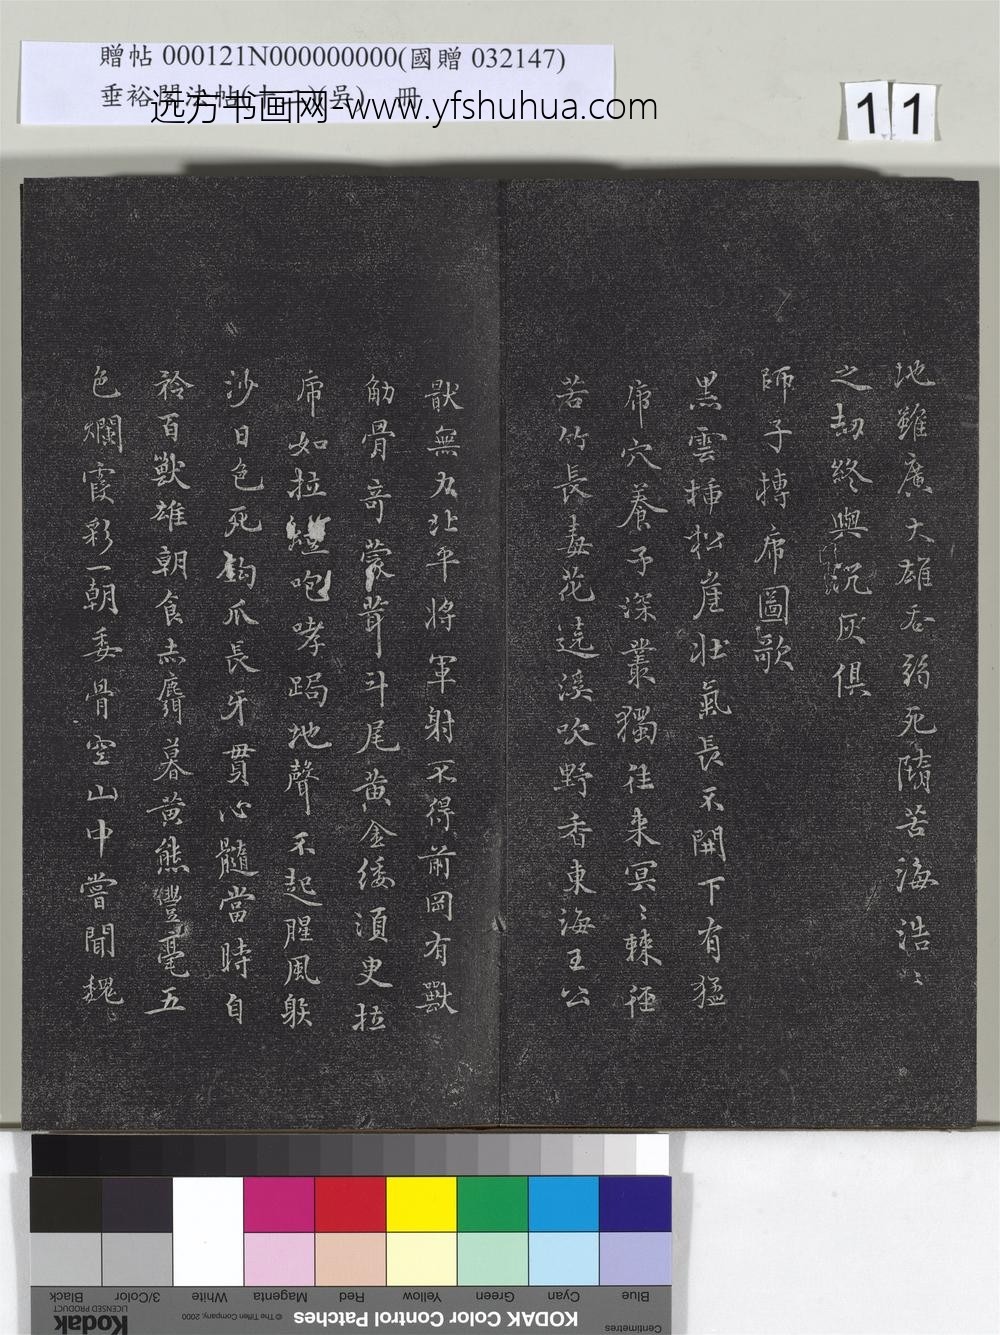 贈帖 000121N000000000(國贈 032147)
垂裕閣法帖(十一)(吳) 冊
远方书画网-www.yfshuhua.com
11
地雖廣大雄否弱死隋苦海浩〻
之劫終與沉灰俱
師子搏虎圖歌
黑雲插松崖壯氣長不開下有猛
虎穴養子深叢獨往来冥〻棘徑
若竹長毒花遶溪吹野香東海王公
獸無力北平將軍射不得前岡有獸
觔骨奇蒙茸斗尾黃金緌須史拉
虎如拉 咆哮跼地聲不起腥風
沙日色死鈎爪長牙貫心髓當時自
矜百獸雄朝食赤麕暮黃熊豐毫五
色爛霞彩一朝委骨空山中嘗聞魏
Blue Cyan Green Yellow Red Magenta White 3/Color Black
Centimetres
KODAK Color Control Patches
© The Tiffen Company, 2000
Kodak
LICENSED PRODUCT